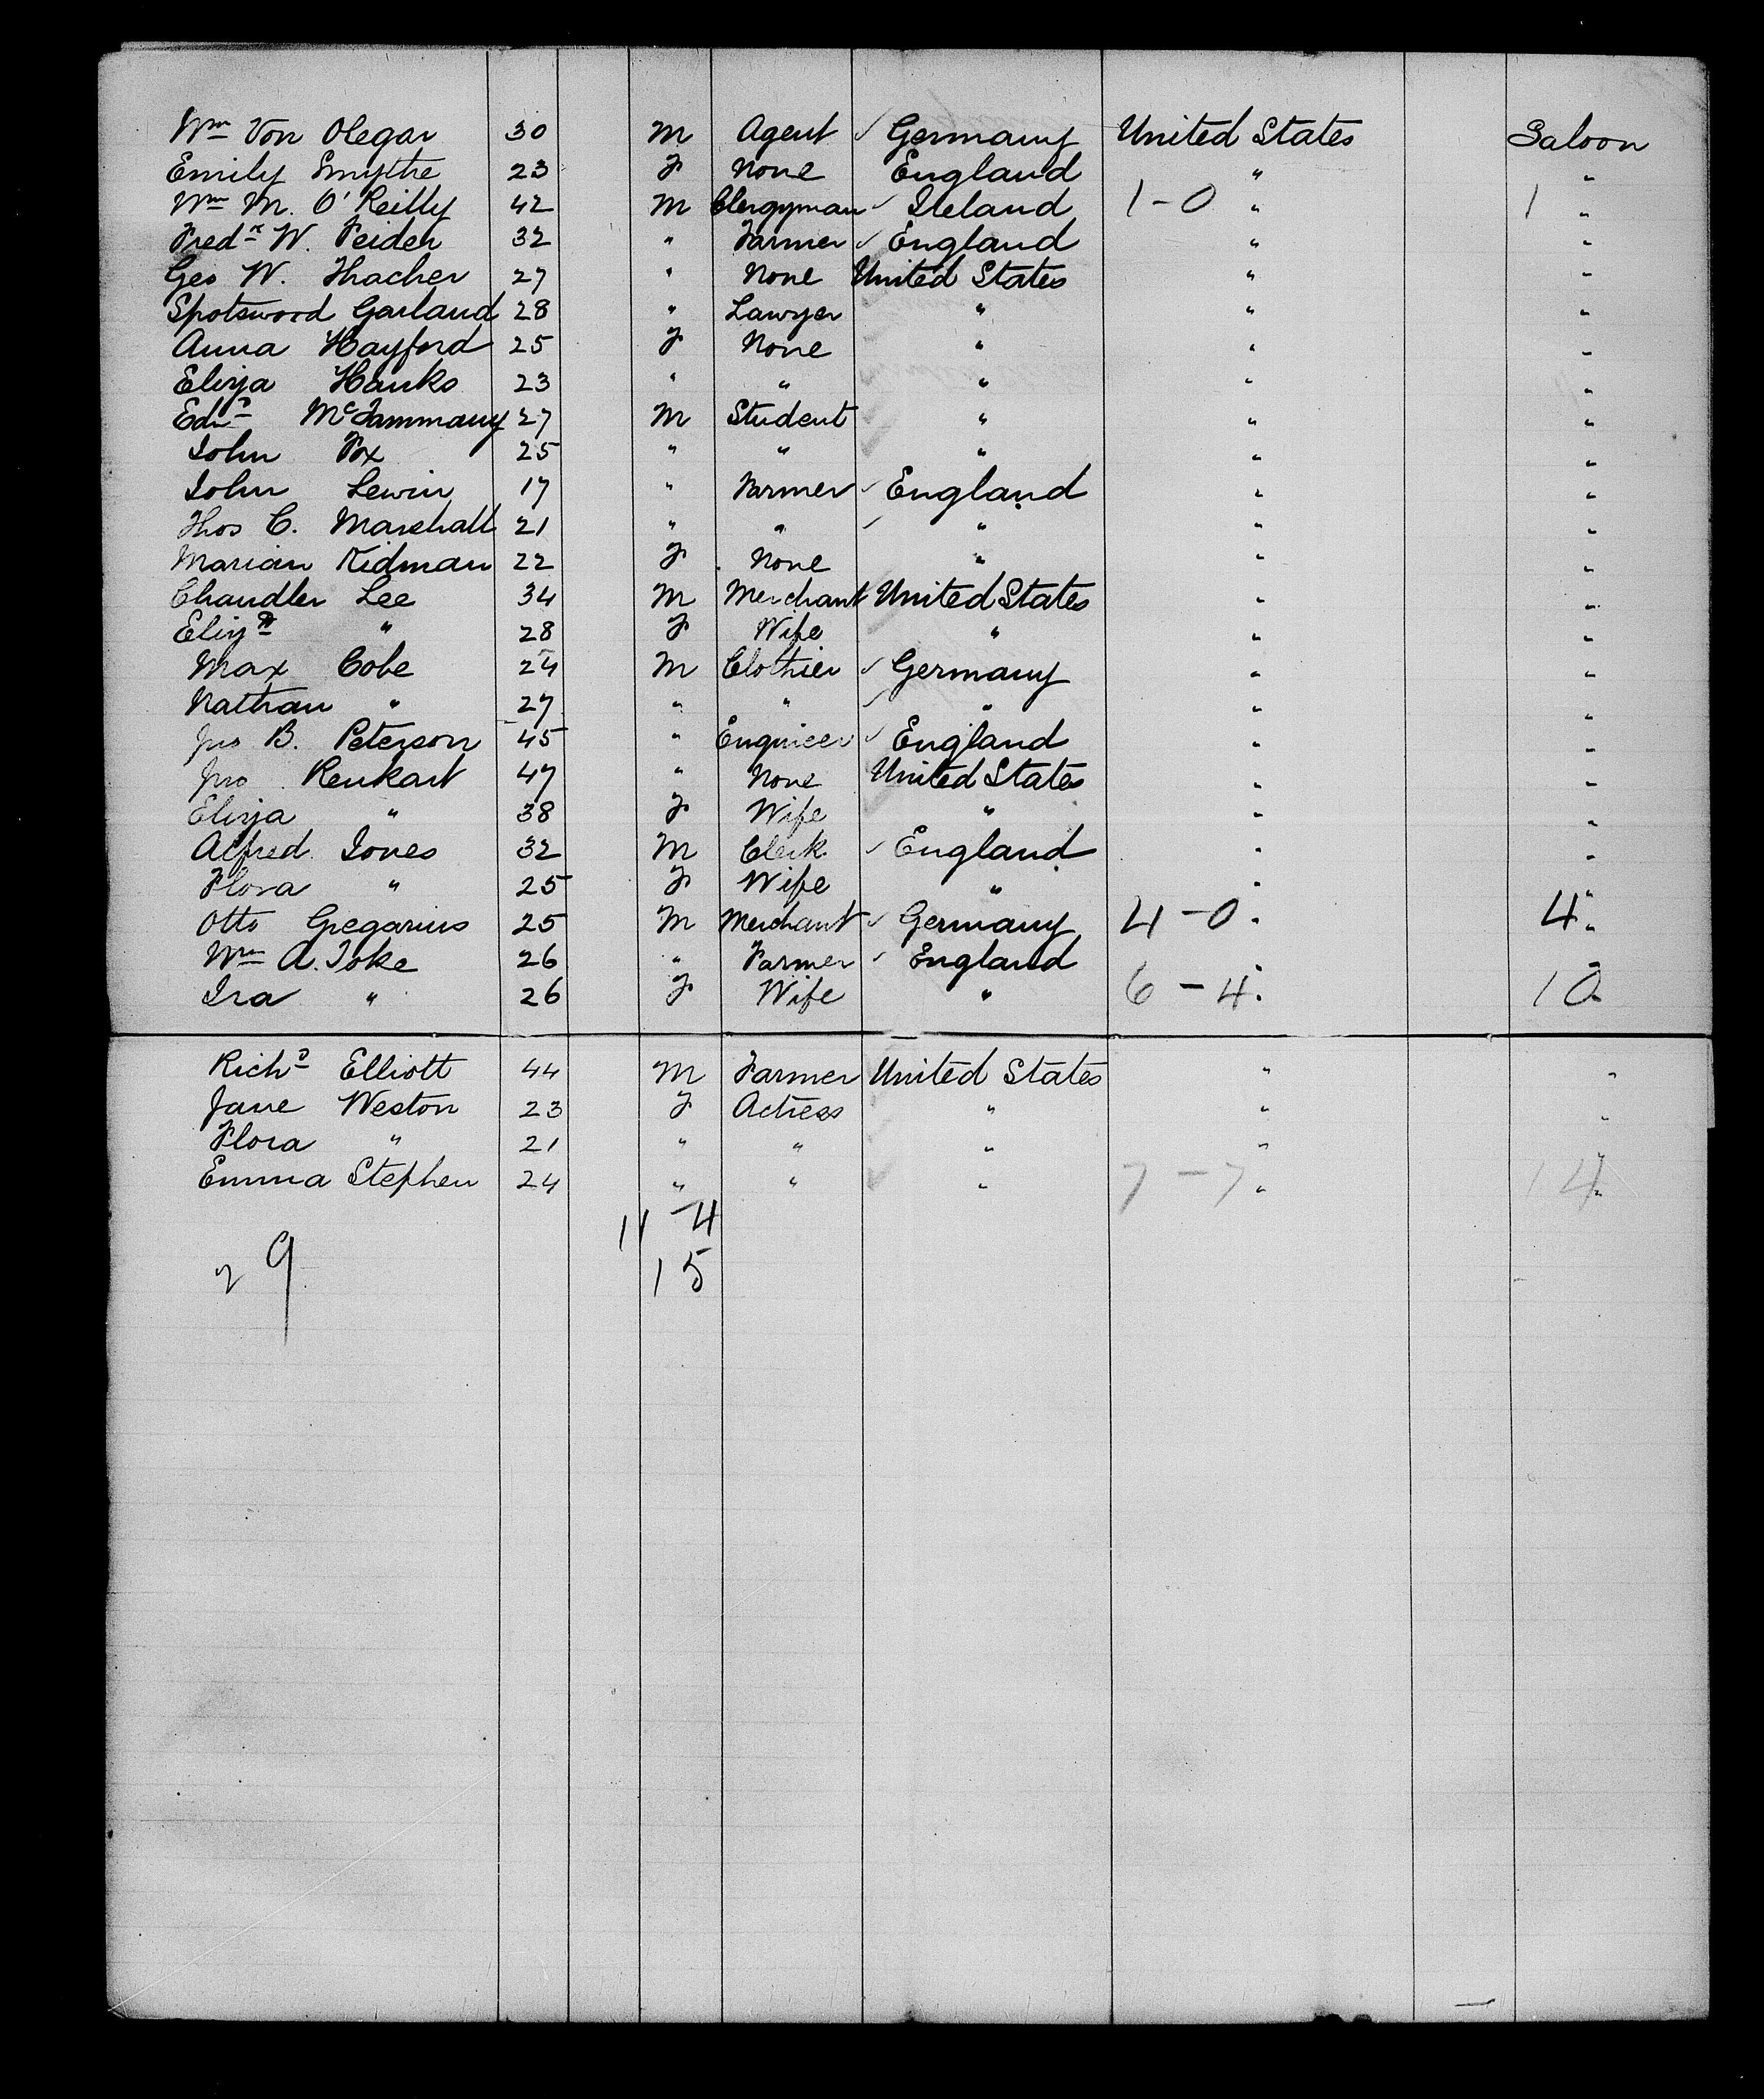 Wm Von Olegar 30 M Agent ✓ Germany United States Saloon
Emily Smythe 23 F None England " "
Wm M. O'Reilly 42 M Clergyman ✓ Ireland 1-0 " 1 "
Fredk W. Feiden 32 " Farmer ✓ England " "
Geo W. Thacher 27 " None United States " "
Spotswood Garland 28 " Lawyer " " "
Anna Hayford 25 F None " " "
Eliza Hanks 23 " " " " "
Edwd McTammany 27 M Student " " "
John Fox 25 " " " " "
John Lewin 17 " Farmer ✓ England " "
Thos C. Marshall 21 " " ✓ " " "
Marian Kidman 22 F None " " "
Chandler Lee 34 M Merchant United States " "
Elizth " 28 F Wife " " "
Max Cobe 24 M Clothier ✓ Germany " "
Nathan " 27 " " ✓ " " "
Jno B. Peterson 45 " Engineer ✓ England " "
Jno Renkart 47 " None United States " "
Eliza " 38 F Wife " " "
Alfred Jones 32 M Clerk ✓ England " "
Flora " 25 F Wife " " "
Otto Gregarius 25 M Merchant ✓ Germany 4-0 " 4 "
Wm A. Toke 26 " Farmer ✓ England " "
Ira " 26 F Wife " 6-4 " 10 "
Richd Elliott 44 M Farmer United States " "
Jane Weston 23 F Actress " " "
Flora " 21 " " " " "
Emma Stephen 24 " " " 7-7 " 14 "
11-4
29 15